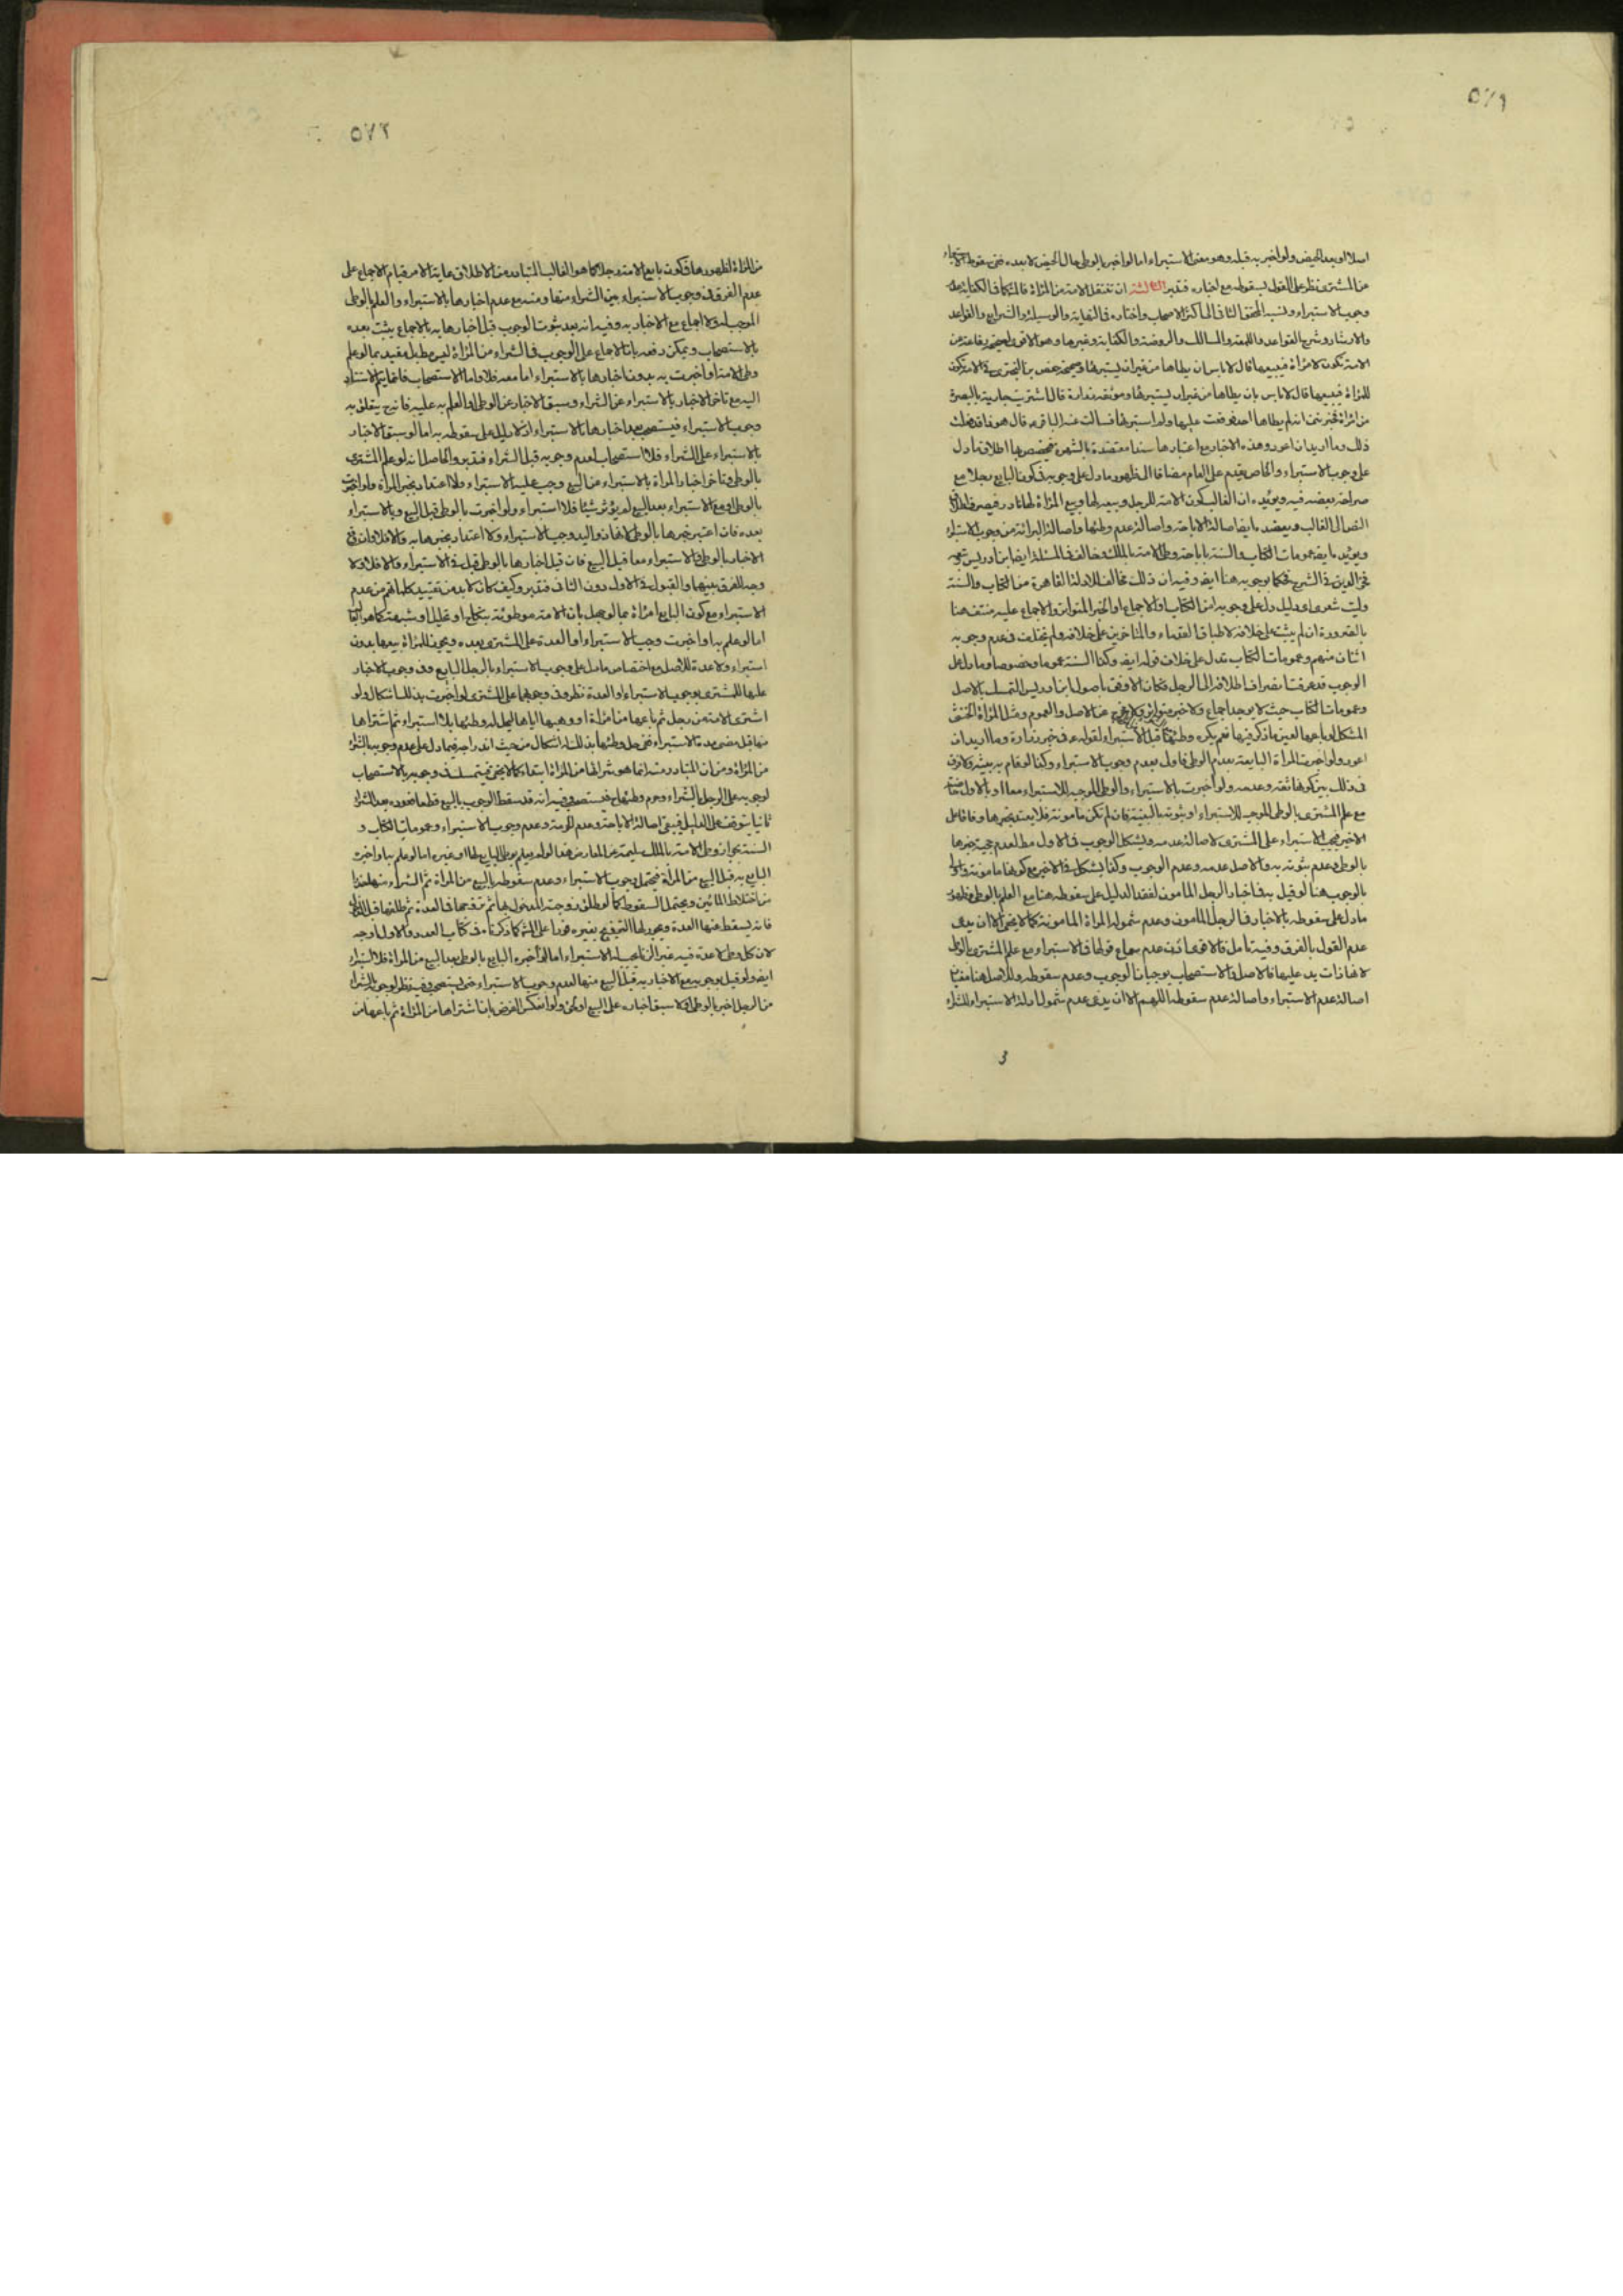 ٥٧١
اصلا او بعد الحيض ولو اخبر به قبله وهو معنى الاستبراء اما لو اخبر بالوطى حال الحيض لا بعده ففى سقوط الاستبراء
عن المشترى نظر على القول بسقوطه مع اخباره فتدبر الثالثة ان تنتقل الامة من المرأة فالمشكا فى الكفاية عدم
وجوب الاستبراء ونسبه المحقق الثانى الى اكثر الاصحاب واختاره فى النهاية والوسيلة والشرايع والقواعد
والارشاد وشرح القواعد واللمعة والمسالك والروضة والكفاية وغيرها وهو الاقوى لصحيحة رفاعة عن
الامة تكون لامرأة فيبيعها قال لا باس ان يطاها من غير ان يستبرئها وصحيحة حفص بن البخترى فى الامة تكون
للمرأة فيبيعها قال لا باس بان يطاها من غير ان يستبرئها وموثقة زرارة قال اشتريت جارية بالبصرة
من امرأة فخبرتنى انه لم يطاها احد فوقعت عليها ولم استبرئها فسالت عنه الباقر ع قال هوذا قد فعلت
ذلك وما اريد ان اعود وهذه الاخبار مع اعتبارها سندا معتضدة بالشهرة فيخصص بها اطلاق ما دل
على وجوب الاستبراء والخاص يقدم على العام مضافا الى ظهور ما دل على وجوبه فى كون البايع رجلا مع
صراحة بعضه فيه ويؤيده ان الغالب كون الامة للرجل وبيعه لها وبيع المرأة لها نادر فينصرف اطلاق
النص الى الغالب ويعضده ايضا اصالة الاباحة واصالة عدم وطئها واصالة البرائة من وجوب الاستبراء
ويؤيده ايضا عمومات الكتاب والسنة باباحة وطى الامة بالملك وخالف فى المسئلة ايضا ابن ادريس وتبعه
فخر الدين فى الشرح فحكما بوجوبه هنا ايضا وفيه ان ذلك مخالف للادلة القاهرة من الكتاب والسنة
وليت شعرى اى دليل دل على وجوبه امن الكتاب او الاجماع او الخبر المتواتر والاجماع عليه منتف هنا
بالضرورة ان لم يثبت على خلافه لاطباق القدماء والمتاخرين على خلافه ولم يتخلف فى عدم وجوبه
اثنان منهم وعمومات الكتاب تدل على خلاف قوله ايضا وكذا السنة عموما وخصوصا وما دل على
الوجوب قد عرفت انصراف اطلاقه الى الرجل فكان الاوفق باصول ابن ادريس التمسك بالاصل
وعمومات الكتاب حيث لا يوجد اجماع ولا خبر متواتر عن الاصل والعموم ومثل المرأة الخنثى
المشكل لو باعها لعين ما ذكر فيها نعم يكره وطئها قبل الاستبراء لقوله ع فى خبر زرارة وما اريد ان
اعود ولو اخبرت المرأة البايعة بعدم الوطى فاولى بعدم وجوب الاستبراء وكذا لو قام به بينة ولا فرق
فى ذلك بين كونها ثقة وعدمه ولو اخبرت بالاستبراء والوطى الموجب للاستبراء معا او بالاول خاصة
مع علم المشترى بالوطى الموجب للاستبراء او ثبوته بالبينة فان لم تكن مامونة فلا يعتد بخبرها وفاقا على
الاخير فيجب الاستبراء على المشترى لاصالة عدمه ويشكل الوجوب فى الاول مطلقا لعدم حجية خبرها
بالوطى وعدم ثبوته به والاصل عدمه وعدم الوجوب وكذا يشكل فى الاخير مع كونها مامونة
بالوجوب هنا لو قيل به فى اخبار الرجل المامون لفقد الدليل على سقوطه هنا مع العلم بالوطى وظهور
ما دل على سقوطه بالاخبار فى الرجل المامون وعدم شموله المرأة المامونة كما لا يخفى الا ان يدعى
عدم القول بالفرق وفيه تامل فالاقوى اذن عدم سماع قولها فى الاستبراء مع علم المشترى بالوطى
لانها ذات يد عليها فالاصل فى الاستصحاب يوجبان الوجوب وعدم سقوطه وللاصل هنا
اصالة عدم الاستبراء واصالة عدم سقوطه اللهم الا ان يدعى عدم شمول ادلة الاستبراء للشراء
٥٧٢
من المرأة لظهورها فى كون بايع الامة رجلا كما هو الغالب المتبادر من الاطلاق غاية الامر قيام الاجماع على
عدم الفرق فى وجوب الاستبراء بين الشراء منها ومنه مع عدم اخبارها بالاستبراء والعلم بالوطى
الموجب له ولا اجماع مع الاخبار به وفيه انه بعد ثبوت الوجوب قبل اخبارها به بالاجماع يثبت بعده
بالاستصحاب ويمكن دفعه بان الاجماع على الوجوب فى الشراء من المرأة ليس مطلقا بل مقيد بما لو علم
وطى الامة او اخبرت به بدون اخبارها بالاستبراء اما معه فلا واما الاستصحاب فانما يتم الاستناد
اليه مع تاخر الاخبار بالاستبراء عن الشراء وسبق الاخبار عن الوطى او العلم به عليه فانه ح يتعلق به
وجوب الاستبراء فيستصحب بعد اخبارها بالاستبراء اذ لا دليل على سقوطه به اما لو سبق الاخبار
بالاستبراء على الشراء فلا استصحاب لعدم وجوبه قبل الشراء فتدبر والحاصل انه لو علم المشترى
بالوطى وتاخر اخبار المرأة بالاستبراء عن البيع وجب عليه الاستبراء ولا اعتداد بخبر المرأة ولو اخبرت
بالوطى ومع الاستبراء بعد البيع لم يؤثر شيئا فلا استبراء ولو اخبرت بالوطى قبل البيع وبالاستبراء
بعده فان اعتبر خبرها بالوطى لانها ذو اليد وجب الاستبراء ولا اعتداد بخبرها به والا فلا وان وقع
الاخبار بالوطى والاستبراء معا قبل البيع فان قبل اخبارها بالوطى قبل فى الاستبراء والا فلا ولا
وجه للفرق بينهما والقبول فى الاول دون الثانى فتدبر وكيف كان لا بد من تقييد كلماتهم من عدم
الاستبراء مع كون البايع امرأة بما لو جهل بان الامة موطوئة بنكاح او تحليل او شبهة كما هو الغالب
اما لو علم به او اخبرت وجب الاستبراء او العدة على المشترى بعده ويجوز للمرأة بيعها بدون
استبراء ولا عدة للاصل مع اختصاص ما دل على وجوب الاستبراء بالرجل البايع وفى وجوب الاخبار
عليها للمشترى بوجوب الاستبراء او العدة نظر وفى وجوبهما على المشترى لو اخبرت بذلك اشكال ولو
اشترى الامة من رجل ثم باعها من امرأة او وهبها اياها ليحل له وطئها بلا استبراء ثم اشتراها
منها قبل مضى مدة الاستبراء ففى حل وطئها بذلك اشكال من حيث اندراجه فيما دل على عدم وجوبه بالشراء
من المرأة ومن ان المتبادر منه انما هو شرائها من المرأة ابتداء كما لا يخفى فيتمسك فى وجوبه بالاستصحاب
لوجوبه على الرجل بالشراء وحرم وطئها فيستصحب وفيه انه قد سقط الوجوب بالبيع قطعا فعوده بعد الشراء
ثانيا يتوقف على الدليل فيبقى اصالة الاباحة وعدم الحرمة وعدم وجوب الاستبراء وعمومات الكتاب و
السنة بجواز وطى الامة بالملك سليمة عن المعارض هذا لو لم يعلم بوطى البايع لها او غيره اما لو علم به او اخبره
البايع به قبل البيع من المرأة فيحتمل وجوب الاستبراء وعدم سقوطه بالبيع من المرأة ثم الشراء منها حذرا
من اختلاط المائين ويحتمل السقوط كما لو طلق زوجته المدخول بها ثم تزوجها فى العدة ثم طلقها قبل الدخول
فانه يسقط عنها العدة ويجوز لها التزويج بغيره فورا على المشهور كما ذكرناه فى كتاب العدد والاول اوجه
لان كل وطى لا عدة فيه غير الزنا يجب له الاستبراء اما لو اخبره البايع بالوطى بعد البيع من المرأة فلا استبراء
ايضا ولو قيل بوجوبه مع الاخبار به قبل البيع منها لعدم وجوب الاستبراء حتى يستصحب وفيه نظر لوجوبه بالشراء
من الرجل اخبر بالوطى ام لا سبق اخباره على البيع او لحق ولو انعكس الفرض بان اشتراها من المرأة ثم باعها من